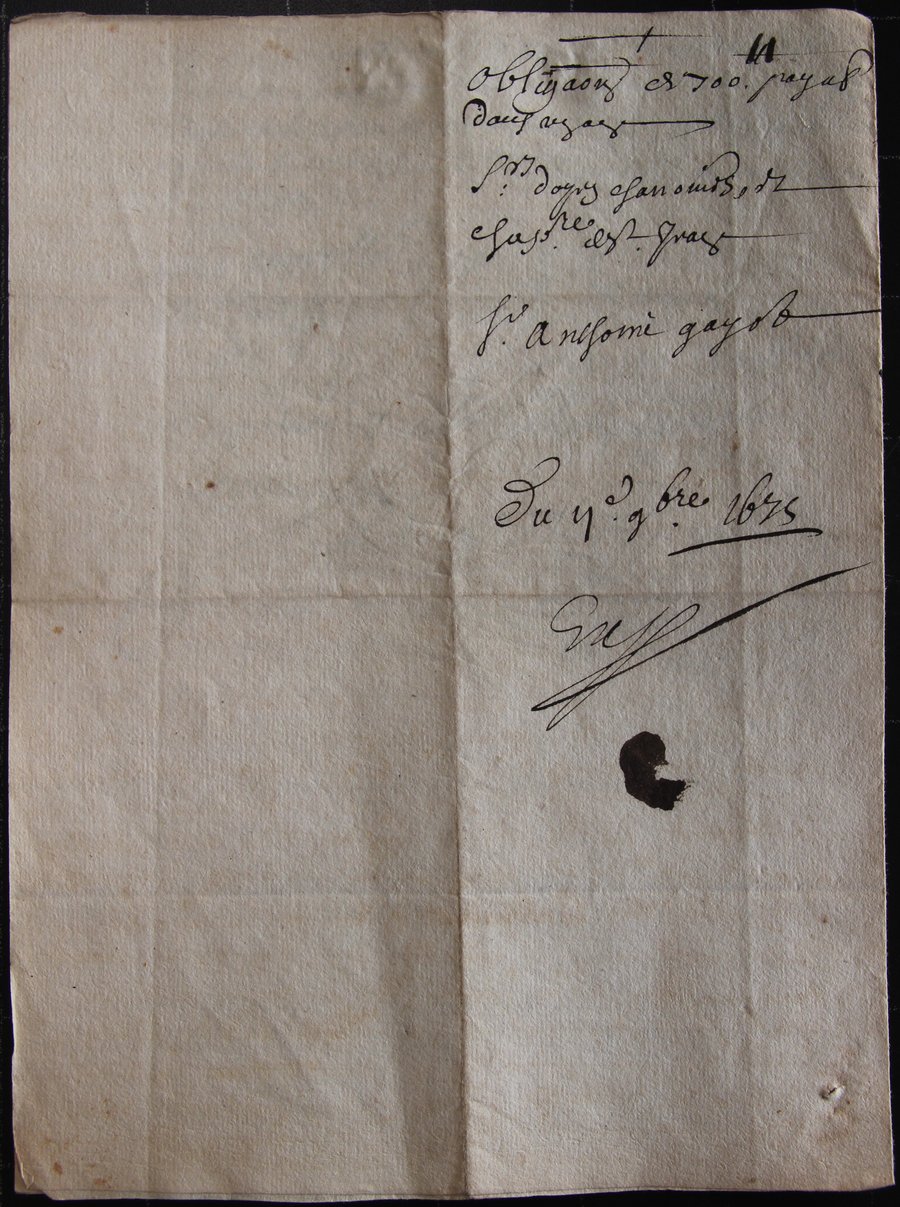 Obliga͠on de 700 ͭͭ. payab
dans
Srs doyen chanoines, et
chappre de st. Jean
Sr. Anthoine gayot
Du 11e. 9bre 1675